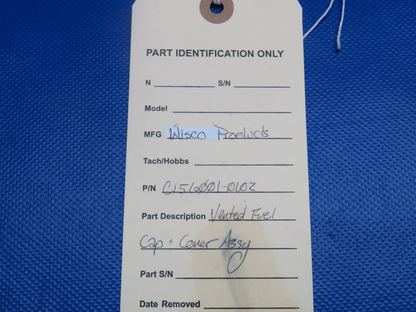 PART IDENTIFICATION ONLY
N S/N
Model
MFG Wisco Products
Tach/Hobbs
P/N C1516001-0102
Part Description Vented Fuel
Cap + Cover Assy
Part S/N
Date Removed